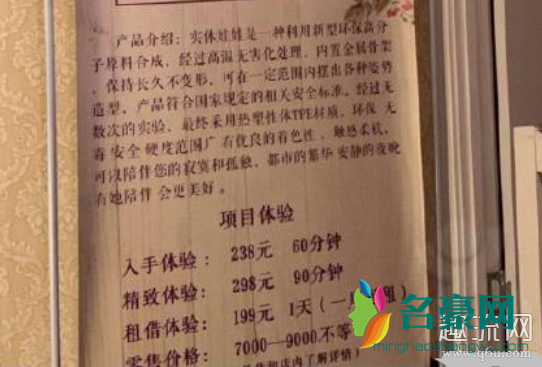 产品介绍：实体娃娃是一种利用新型环保高分
子原料合成，经过高温无害化处理，内置金属骨架
，保持长久不变形，可在一定范围内摆出各种姿势
造型。产品符合国家规定的相关安全标准。经过无
数次的实验，最终采用热塑性体TPE材质，环保 无
毒 安全 硬度范围广 有优良的着色性，触感柔软，
可以陪伴您的寂寞和孤独，都市的繁华 安静的夜晚
有她陪伴 会更美好。
项目体验
入手体验： 238元 60分钟
精致体验： 298元 90分钟
租借体验： 199元 1天（一
零售价格： 7000—9000不等
店内了解详情）
名豪网
minghaosheng
趣玩网
www.q6u.com